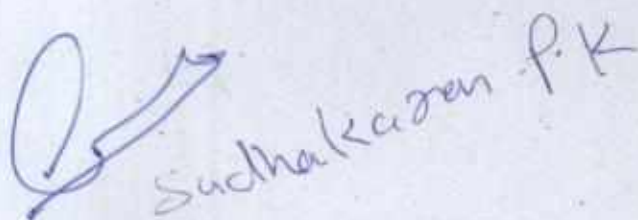 Sudhakaran P.K